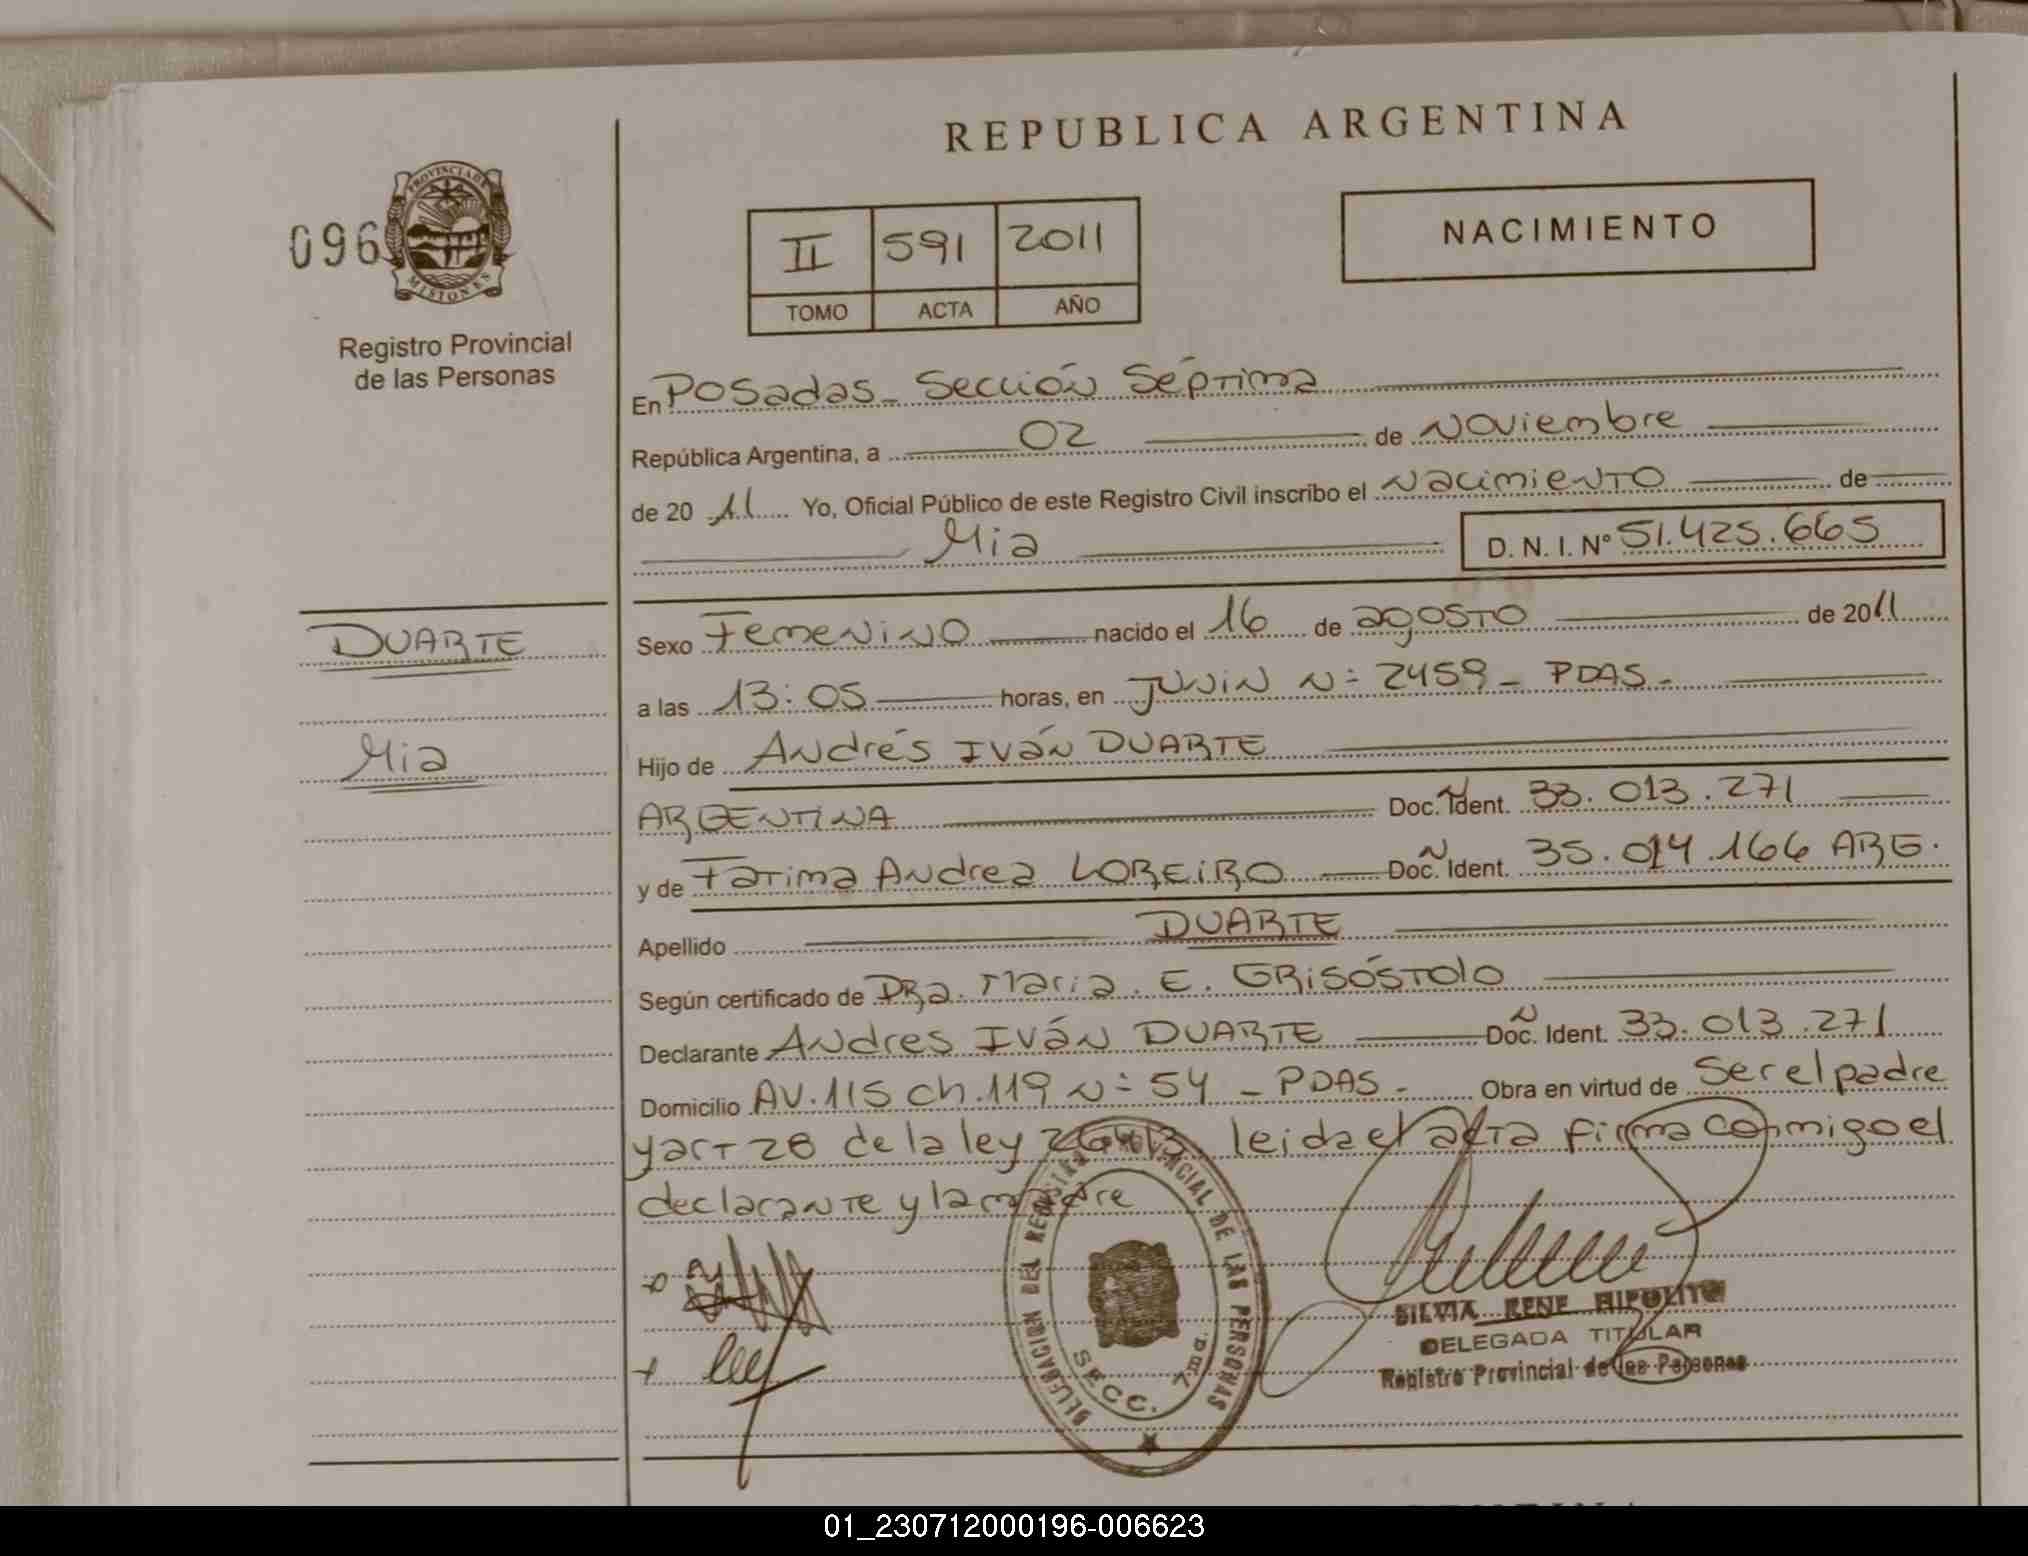 REPUBLICA ARGENTINA
096
PROVINCIA DE MISIONES
Registro Provincial
de las Personas
II 591 2011
TOMO ACTA AÑO
NACIMIENTO
En Posadas - Sección Séptima
República Argentina, a 02 de Noviembre
de 2011 Yo, Oficial Público de este Registro Civil inscribo el Nacimiento de
Mia D. N. I. Nº 51.425.665
DUARTE
Mia
Sexo Femenino nacido el 16 de agosto de 2011
a las 13:05 horas, en JUNIN N= 2459 - PDAS -
Hijo de Andrés Iván DUARTE
ARGENTINA Doc. Ident. 33.013.271
y de Fatima Andrea LOREIRO Doc. Ident. 35.014.166 ARG.
Apellido DUARTE
Según certificado de DRa. Maria. E. GRISÓSTOLO
Declarante Andres Iván DUARTE Doc. Ident. 33.013.271
Domicilio AV. 115 ch. 119 N= 54 - PDAS - Obra en virtud de ser el padre
y art 28 de la ley 26413 leida el acta firma conmigo el
declarante y la madre
DELEGACION DEL REGISTRO PROVINCIAL DE LAS PERSONAS
SECC. 7ma.
SILVIA RENE HIPOLITO
DELEGADA TITULAR
Registro Provincial de las Personas
01_230712000196-006623